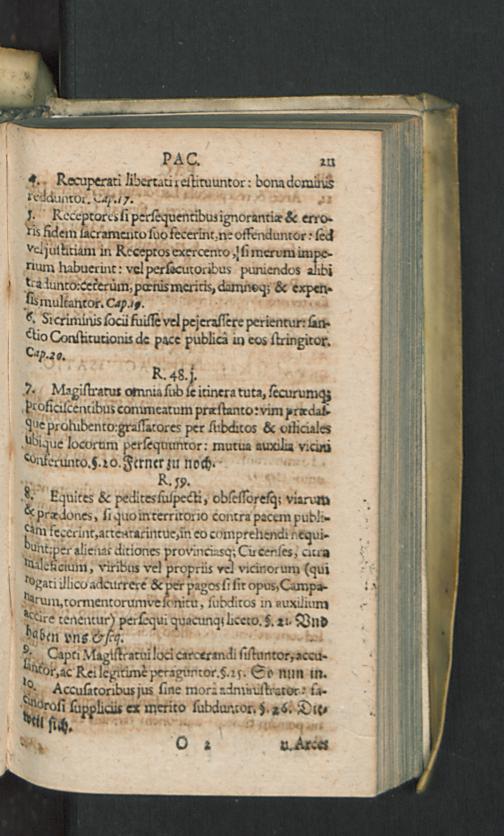 PAC. 211
4. Recuperati libertati restituuntor: bona dominis
redduntor. Cap. 17.
5. Receptores si persequentibus ignorantiæ & erro-
ris fidem sacramento suo fecerint, ne offenduntor: sed
vel justitiam in Receptos exercento, si merum impe-
rium habuerint: vel persecutoribus puniendos alibi
tradunto: ceterùm, pœnis meritis, damnoq; & expen-
sis multantor. Cap. 19.
6. Si criminis socii fuisse vel pejerassere perientur: san-
ctio Constitutionis de pace publicâ in eos stringitor.
Cap. 20.
R. 48. j.
7. Magistratus omnia sub se itinera tuta, securumq;
proficiscentibus commeatum præstanto: vim prædas-
que prohibento: grassatores per subditos & officiales
ubique locorum persequuntor: mutua auxilia vicini
conferunto. §. 20. Ferner zu noch.
R. 59.
8. Equites & pedites suspecti, obsessoresq; viarum
& prædones, si quo in territorio contra pacem publi-
cam fecerint, attextarintue, in eo comprehendi nequi-
bunt: per alienas ditiones provinciasq; Cu censes, citra
maleficium, viribus vel propriis vel vicinorum (qui
rogati illico adcurrere & per pagos si sit opus, Campa-
narum, tormentorumve sonitu, subditos in auxilium
accire tenentur) persequi quacunq; liceto. §. 21. Vnd
haben vns & seq.
9. Capti Magistratui loci carcerandi sistuntor, accu-
santor, ac Rei legitimè peraguntor. §. 25. So nun in.
10. Accusatoribus jus sine morâ administrator: fa-
cinorosi suppliciis ex merito subduntor. §. 26. Die-
weil sich.
O 2 11. Arces